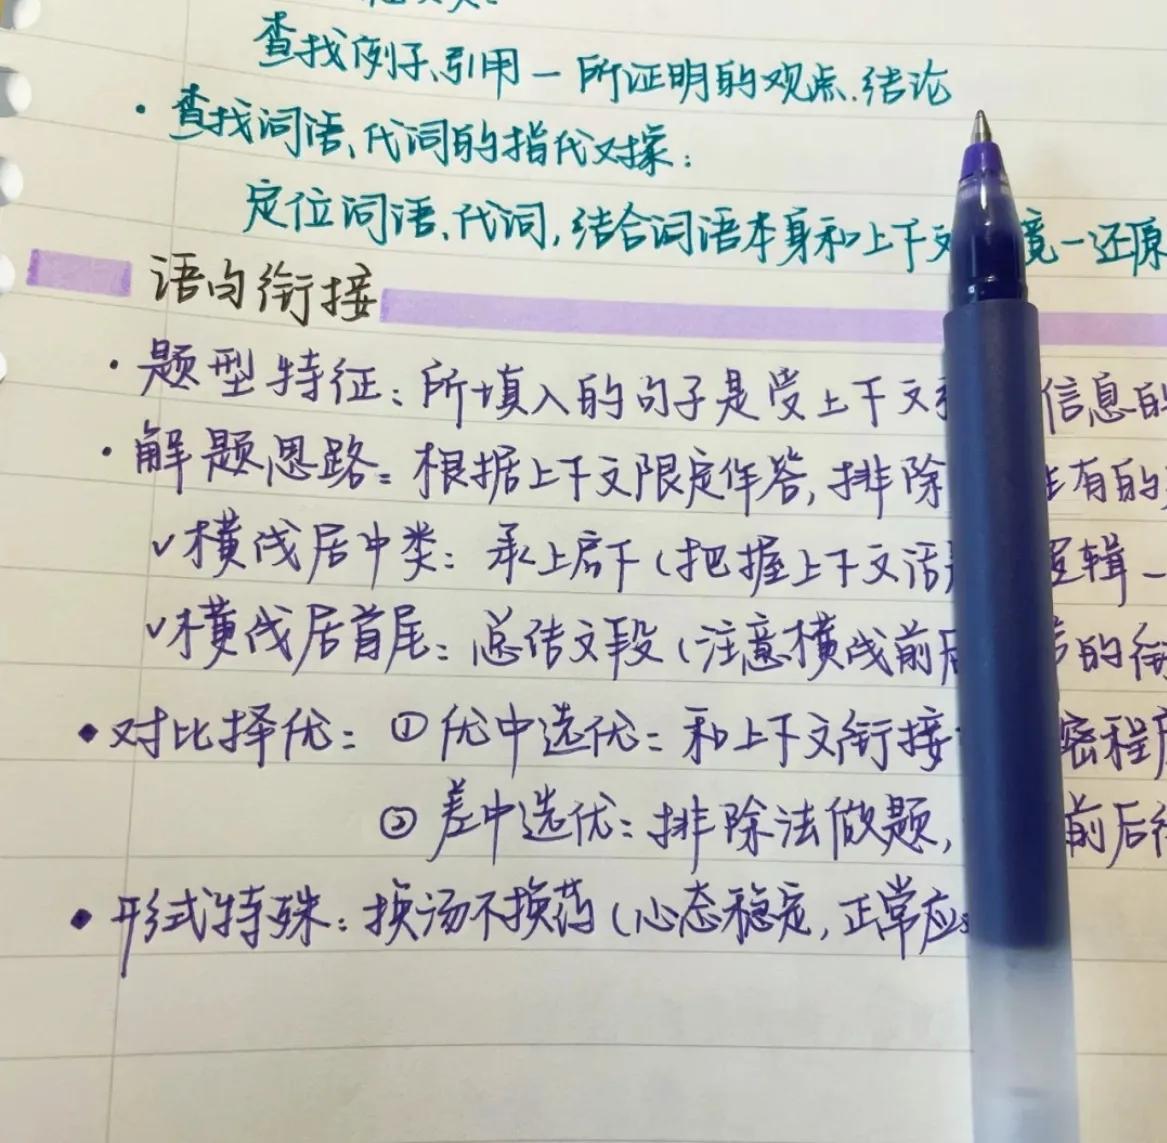 查找例子、引用—所证明的观点.结论
· 查找词语、代词的指代对象：
定位词语、代词，结合词语本身和上下文 境—还原
语句衔接
· 题型特征：所填入的句子是受上下文 信息的
· 解题思路：根据上下文限定作答，排除 有的
√横线居中类：承上启下（把握上下文话 逻辑—
√横线居首尾：总结文段（注意横线前后 的衔
• 对比择优：①优中选优：和上下文衔接 密程度
②差中选优：排除法做题， 前后
• 形式特殊：换汤不换药（心态稳定，正常应